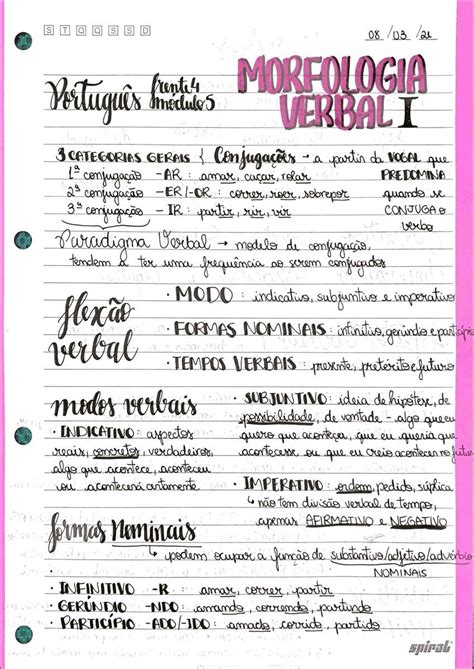 S T Q Q S S D
08 / 03 / 21
Português frente 4
módulo 5
MORFOLOGIA
VERBAL I
3 CATEGORIAS GERAIS { Conjugações → a partir da VOGAL que
1ª conjugação -AR: amar, caçar, ralar PREDOMINA
2ª conjugação -ER/-OR: correr, roer, sobrepor quando se
3ª conjugação - IR: partir, rir, vir CONJUGA o
verbo
Paradigma Verbal → modelo de conjugação,
tendem a ter uma frequência ao serem conjugados
flexão
verbal
· MODO: indicativo, subjuntivo e imperativo
· FORMAS NOMINAIS: infinitivo, gerúndio e particípio
· TEMPOS VERBAIS: presente, pretérito e futuro
modos verbais
· INDICATIVO: aspectos
reais, concretos, verdadeiros,
algo que acontece, aconteceu
ou acontecerá certamente
· SUBJUNTIVO: ideia de hipótese, de
possibilidade, de vontade - algo que eu
quero que aconteça, que eu queria que
acontecesse ou que eu creio acontecer no futuro
· IMPERATIVO: ordem, pedido, súplica
↳ não tem divisão verbal de tempo,
apenas AFIRMATIVO e NEGATIVO
formas Nominais
↳ podem ocupar a função de substantivo/adjetivo/advérbio
NOMINAIS
· INFINITIVO -R : amar, correr, partir
· GERÚNDIO -NDO: amando, correndo, partindo
· PARTICÍPIO -ADO/-IDO: amado, corrido, partido
spiral